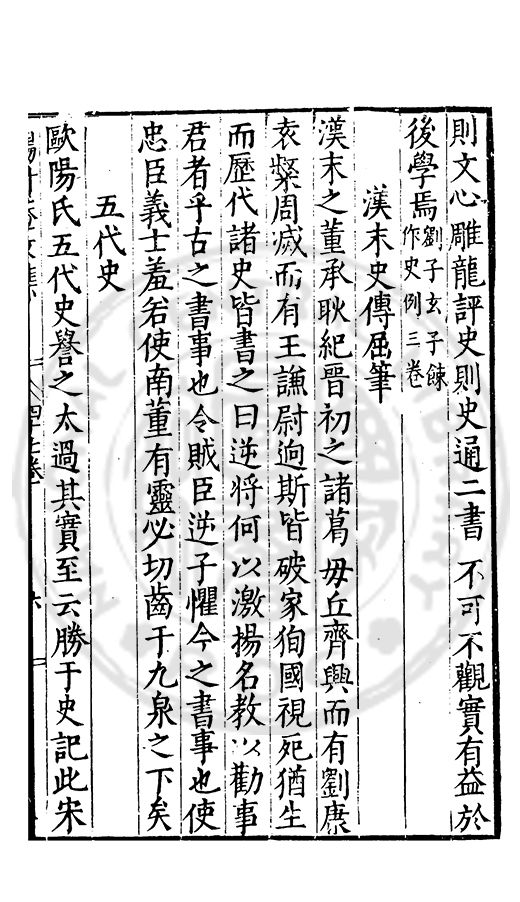 則文心雕龍評史則史通二書不可不觀實有益於
後學焉劉子玄子餗作史例三卷
漢末史傳屈筆
漢末之董承耿紀晉初之諸葛毋丘齊興而有劉康
袁粲周滅而有王謙尉逈斯皆破家狥國視死猶生
而歷代諸史皆書之曰逆將何以激揚名教以勸事
君者乎古之書事也令賊臣逆子懼今之書事也使
忠臣義士羞若使南董有靈必切齒于九泉之下矣
五代史
歐陽氏五代史譽之太過其實至云勝于史記此宋